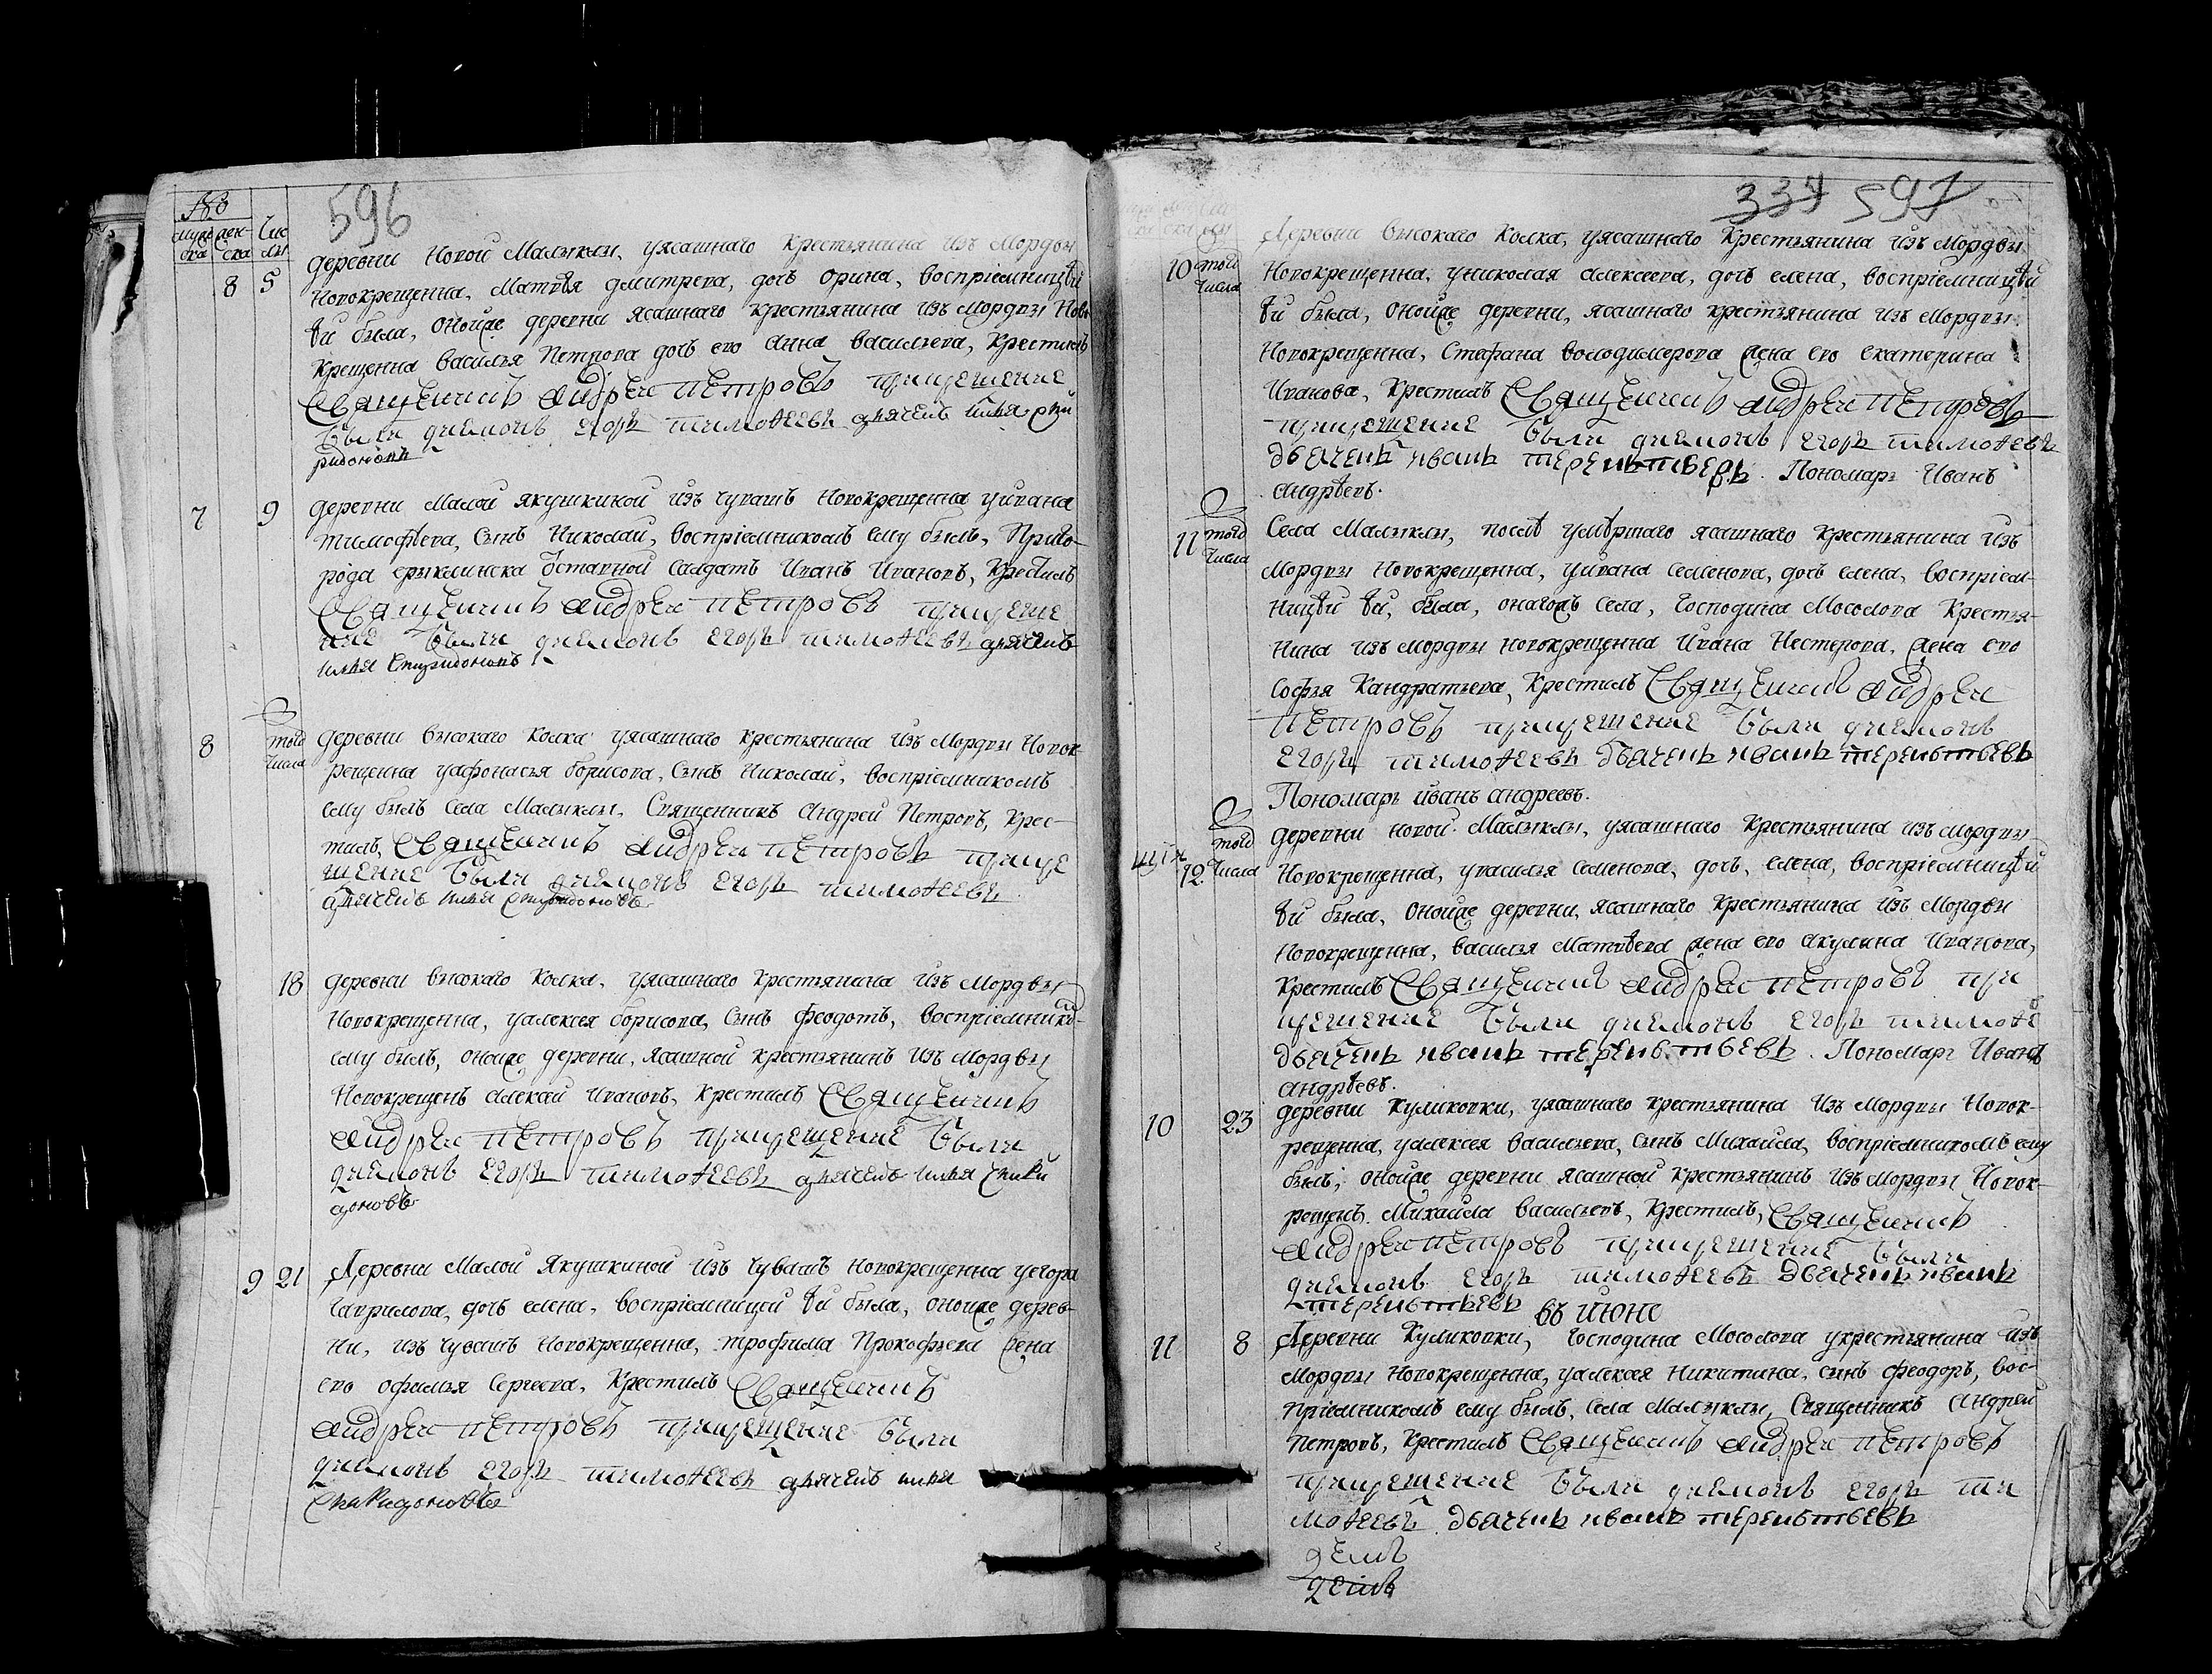 596
муже ска
жен-ска
Чис лы
8 5 деревни Новой Малыклы, уясашнаго крестьянина изъ Мордвы
Новокрещенна, Матвѣя дмитрева, дочь орина, воспріемницѣй
ѣй была, оноиже деревни ясашнаго крестьянина изъ мордвы Ново
крещенна василья Петрова дочь его анна васильева, крестилъ
Священникъ андреи петровъ при крещение
были диаконъ егоръ тимоѳеевъ дьячекъ илья спи
ридоновъ
7 9 деревни Малой якушкиной изъ чувашъ новокрещенна уивана
тимофѣева, сынъ Николай, воспріемникомъ ему былъ, Приго-
рода ерыклинска Отставной салдатъ Иванъ Ивановъ, крестилъ
Священникъ андреи петровъ при креще
ние были диаконъ егоръ тимоѳеевъ дьячекъ
илья спиридоновъ
8 того числа деревни высокаго колка уясашнаго крестьянина изъ Мордвы Новок
рещенна уафонасья борисова, сынъ Николай, воспріемникомъ
ему былъ села Малыклы, Священникъ Андрей Петровъ, крес-
тилъ, Священникъ андреи петровъ при кре
щение были диаконъ егоръ тимоѳеевъ
дьячекъ илья спиридоновъ
18 деревни высокаго колка, уясашнаго крестьянина изъ Мордвы
новокрещенна, уалексея борисова, сынъ феодотъ, воспріемнико-
ему былъ, оноиже деревни, ясашной крестьянинъ изъ мордвы
Новокрещенъ алексей Ивановъ, крестилъ Священникъ
андреи петровъ при крещение были
диаконъ егоръ тимоѳеевъ дьячекъ илья спири
доновъ
9 21 Деревни Малой Якушкиной изъ чувашъ новокрещенна уегора
Гаврилова, дочь елена, воспріемницей ѣй была, оноиже дерев-
ни, изъ чувашъ новокрещенна, трофима Прокофьева жена
его офимья сергеева, крестилъ Священникъ
андреи петровъ при крещение были
диаконъ егоръ тимоѳеевъ дьячекъ илья
спиридоновъ
337 597
10 того числа Деревни высокаго колка, уясашнаго крестьянина изъ Мордвы
новокрещенна, униколая алексеева, дочь елена, воспріемницѣй
ѣй была, оноиже деревни, ясашнаго крестьянина изъ мордвы
новокрещенна, Стефана володимерова жена его екатерина
Иванова, крестилъ Священникъ андреи петровъ
при крещение были диаконъ егоръ тимоѳеевъ
дьячекъ иванъ терентьевъ. Пономарь Иванъ
андрѣевъ.
11 того числа Села Малыклы, послѣ умѣршаго ясашнаго крестьянина изъ
мордвы новокрещенна, уивана семенова, дочь елена, воспріем-
ницѣй ѣй, была, онагожъ села, Господина Мосолова крестья-
нина изъ мордвы новокрещенна Ивана Нестерова, жена его
софья Кандратьева, крестилъ Священникъ андреи
петровъ при крещение были диаконъ
егоръ тимоѳеевъ дьячекъ иванъ терентьевъ
Пономарь иванъ андреевъ.
12 того числа деревни новой Малыклы, уясашнаго крестьянина изъ мордвы
новокрещенна, увасилья семенова, дочь, елена, воспріемницѣй
ѣй была, оноиже деревни, ясашнаго крестьянина изъ мордвы
новокрещенна, василья Матвѣева жена его акулина Иванова,
крестилъ Священникъ андреи петровъ при
крещение были диаконъ егоръ тимоѳе
дьячекъ иванъ терентьевъ. Пономарь Иванъ
андрѣевъ.
10 23 деревни куликовки, уясашнаго крестьянина изъ мордвы Новок-
рещенна, уалексея васильева, сынъ Михайла, воспріемникомъ ему
былъ, оноиже деревни ясашной крестьянинъ изъ мордвы Новок-
рещенъ, Михайла васильевъ, крестилъ, Священникъ
андреи петровъ при крещение были
диаконъ егоръ тимоѳеевъ дьячекъ иванъ
терентьевъ въ июне
11 8 Деревни Куликовки, Господина Мосолова укрестьянина изъ
мордвы новокрещенна, уалексея никитина, сынъ феодоръ, вос-
пріемникомъ ему былъ, села малыклы, Священникъ Андрей
Петровъ, крестилъ Священникъ андреи петровъ
при крещение были диаконъ егоръ ти
моѳеевъ дьячекъ иванъ терентьевъ